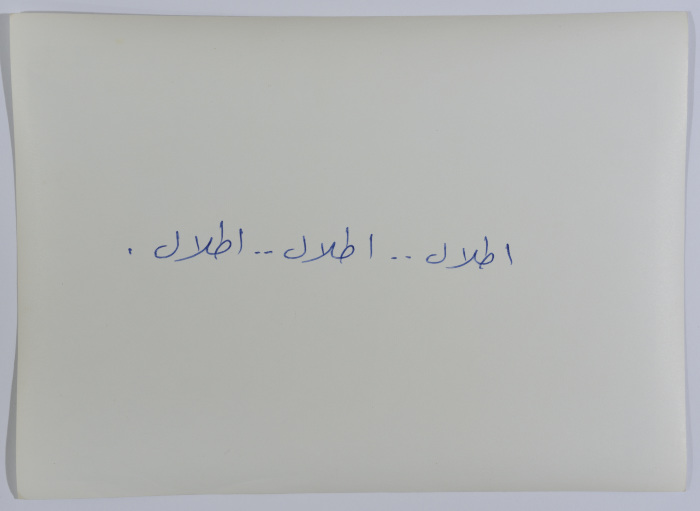 اطلال .. اطلال .. اطلال .